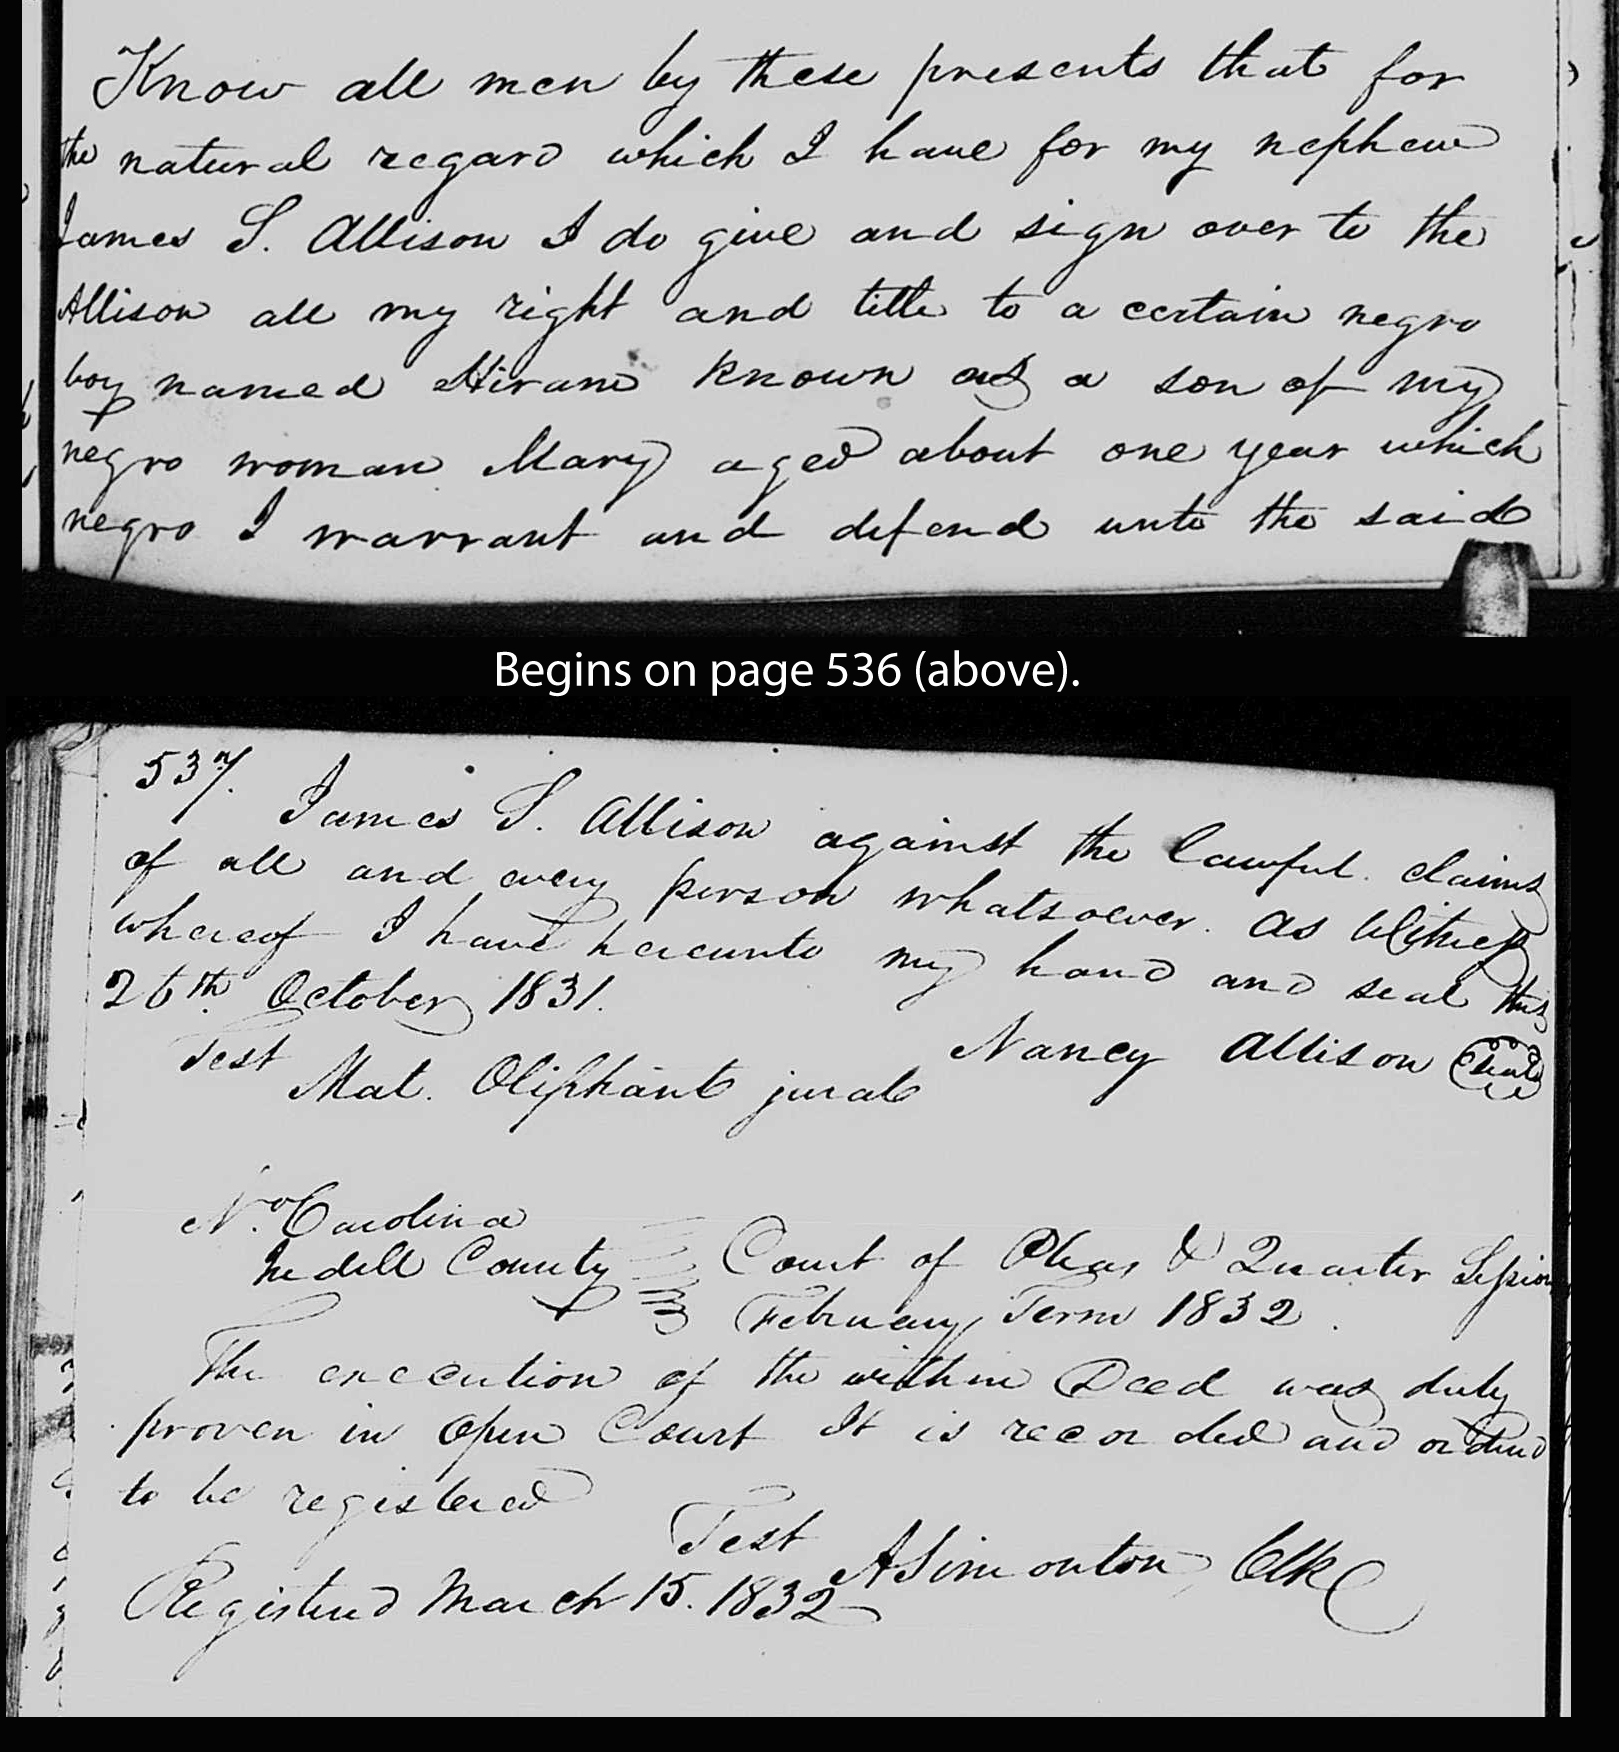 Know all men by these presents that for
the natural regard which I have for my nephew
James S. Allison I do give and sign over to the
Allison all my right and title to a certain negro
boy named Hiram known as a son of my
negro woman Mary aged about one year which
negro I warrant and defend unto the said
Begins on page 536 (above).
537.
James S. Allison against the lawful claims
of all and every person whatsoever. As Witness
whereof I have hereunto my hand and seal this
26th. October 1831.
Nancy Allison (Seal)
Test
Mat. Oliphant jurat
No. Carolina
Iredell County Court of Pleas & Quarter Session
February Term 1832.
The execution of the within Deed was duly
proven in Open Court It is recorded and ordered
to be registered
Test
A Simonton, Clk
Registered March 15. 1832